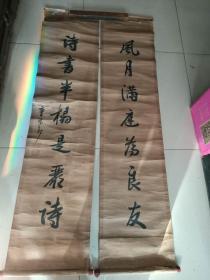 風月滿庭為良友
詩書半榻是嚴詩